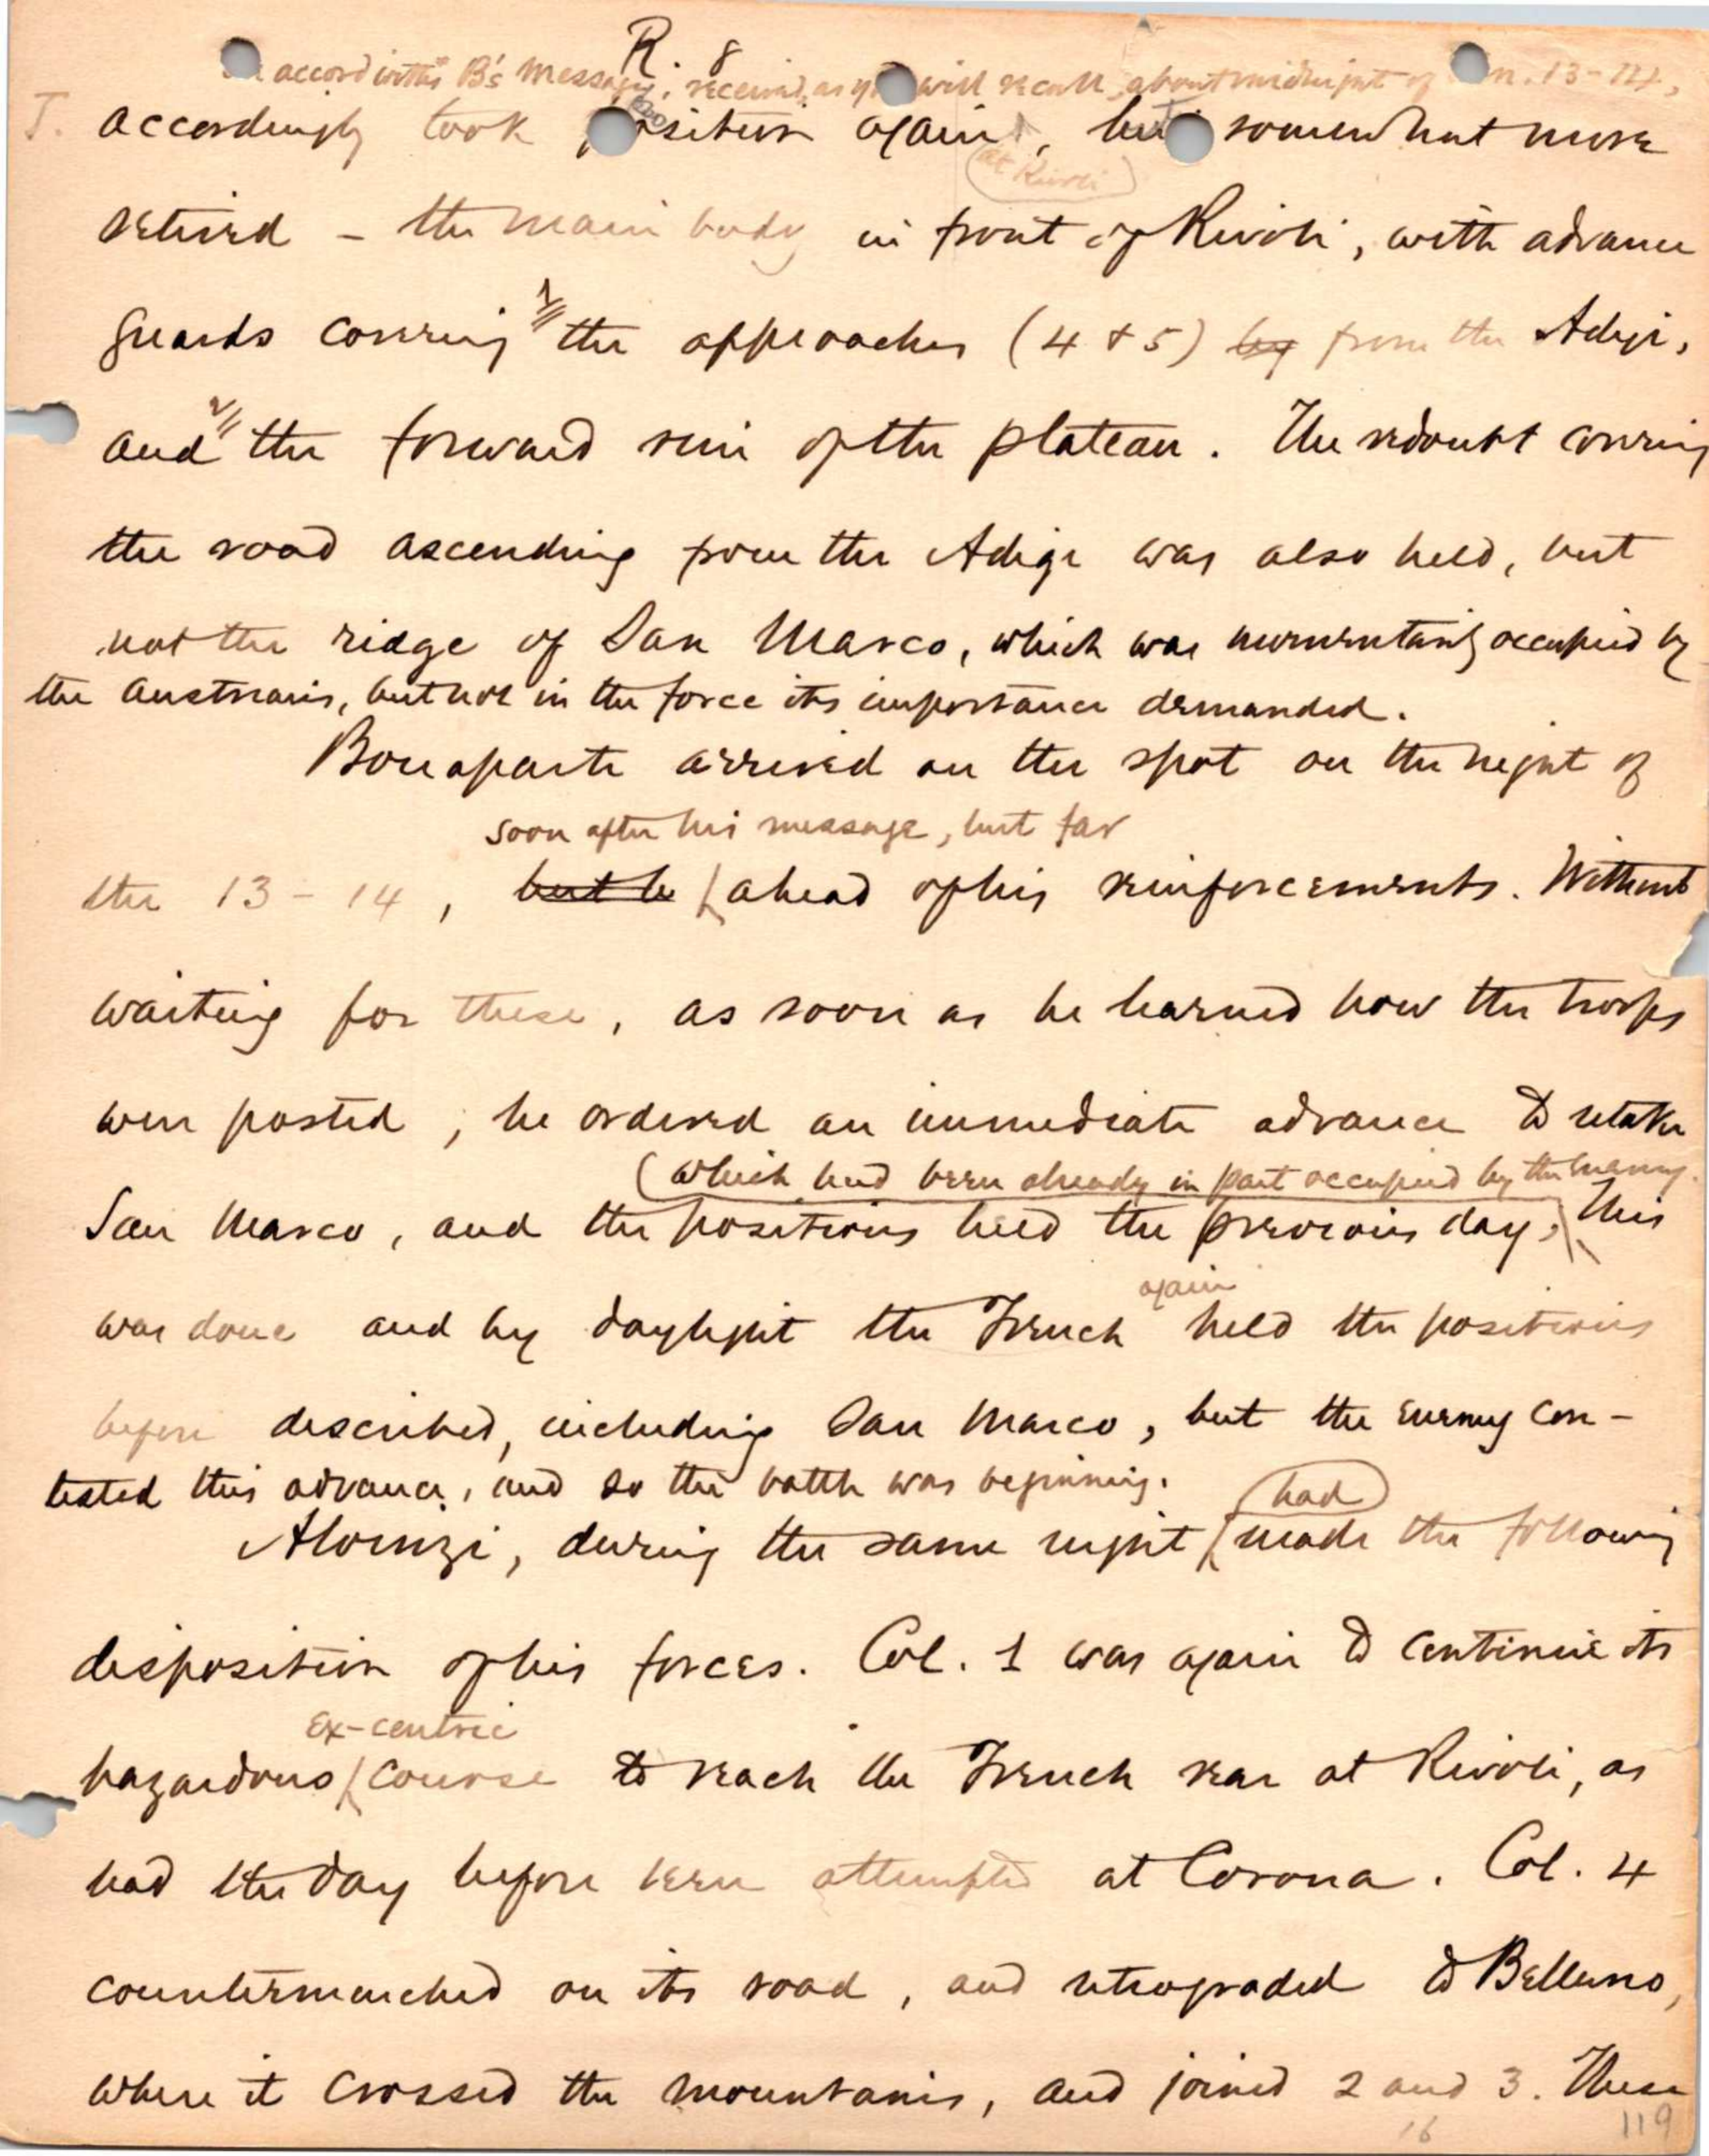 R. 8
accord with B's message, received, as you will recall, about midnight of Jan. 13-14,
J. accordingly took position again, but somewhat more
at Rivoli
retired – the main body in front of Rivoli, with advance
guards covering 1 the approaches (4 & 5) by from the Adige,
and 2 the forward rim of the plateau. The redoubt covering
the road ascending from the Adige was also held, but
not the ridge of San Marco, which was momentarily occupied by
the Austrians, but not in the force its importance demanded.
Bonaparte arrived on the spot on the night of
soon after his message, but far
the 13 – 14, but he ahead of his reinforcements. Without
waiting for these, as soon as he learned how the troops
were posted, he ordered an immediate advance to retake
(which had been already in part occupied by the enemy.
San Marco, and the positions held the previous day, This
again
was done and by daylight the French held the positions
before described, including San Marco, but the enemy con-
tested this advance, and so the battle was beginning.
had
Alvinzi, during the same night made the following
disposition of his forces. Col. 1 was again to continue its
ex-centric
hazardous course to reach the French rear at Rivoli, as
had the day before been attempted at Corona. Col. 4
countermarched on its road, and retrograded to Belluno,
where it crossed the mountains, and joined 2 and 3. These
16
119